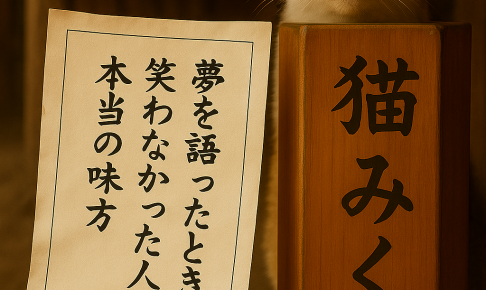 夢を語ったとき
笑わなかった人
本当の味方
猫みく